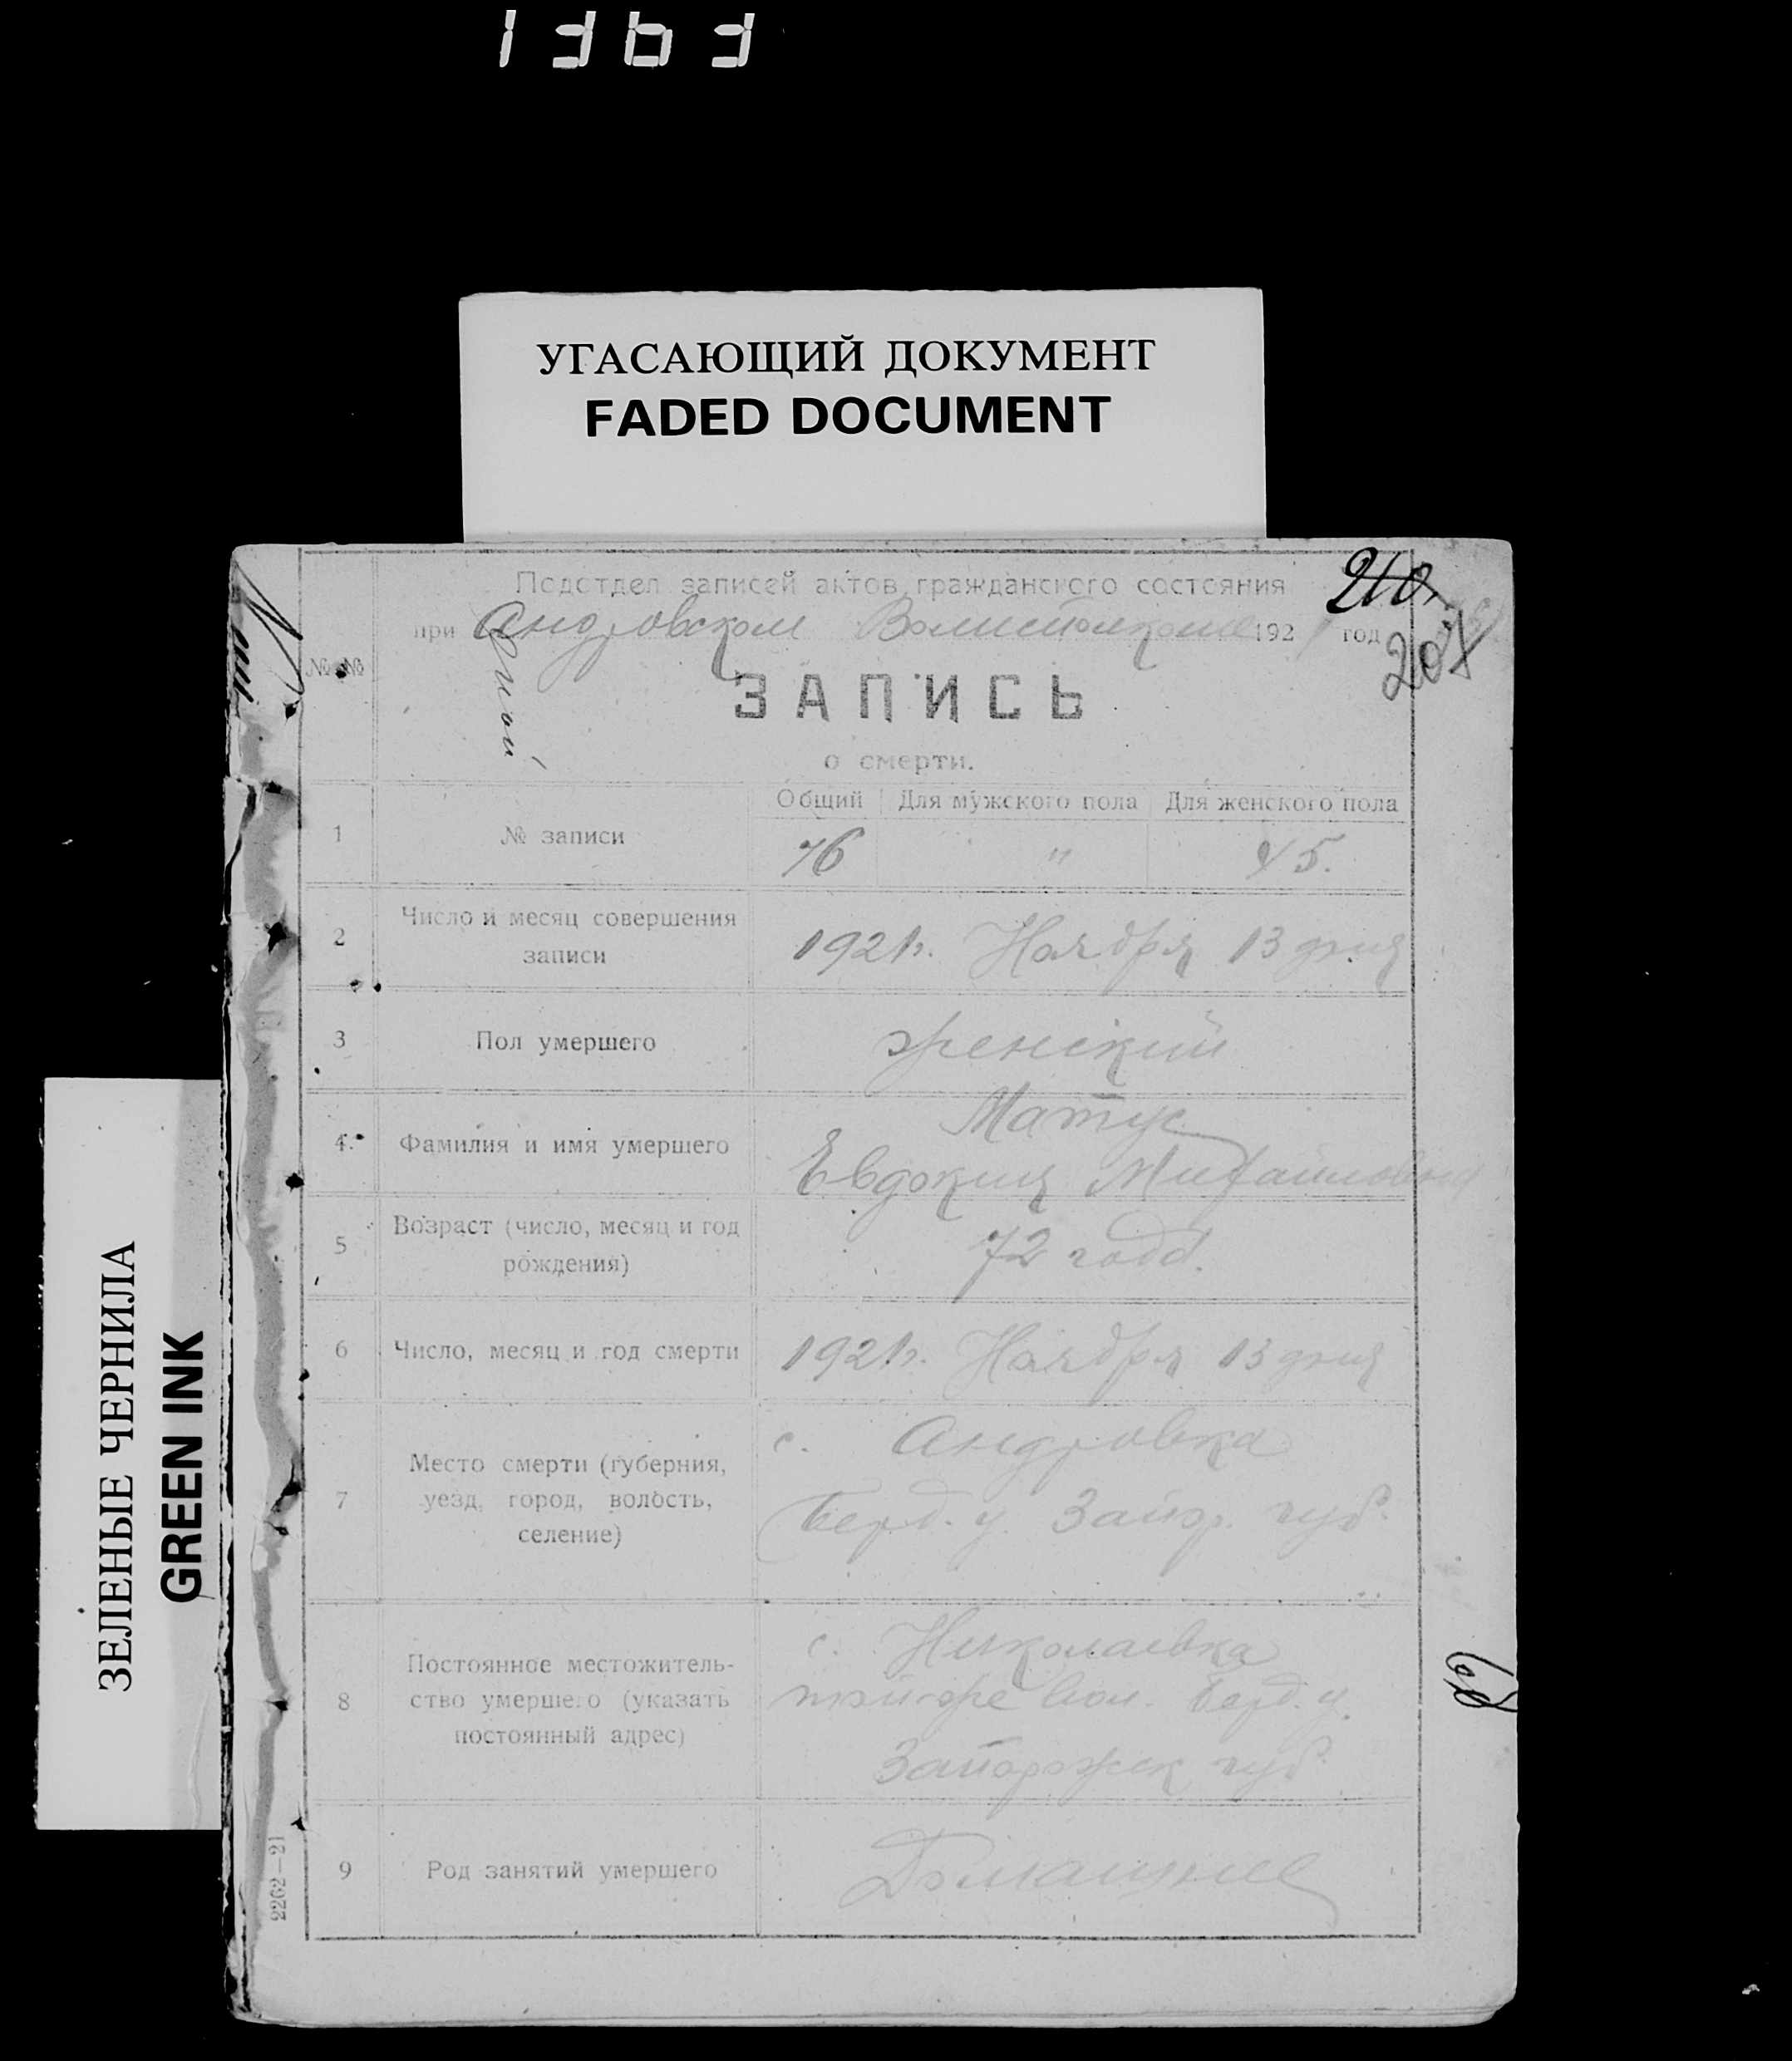 1363
УГАСАЮЩИЙ ДОКУМЕНТ
FADED DOCUMENT
ЗЕЛЕНЫЕ ЧЕРНИЛА
GREEN INK
210
207
Подотдел записей актов гражданского состояния
при Андровском Волисполкоме 192 год
№№
ЗАПИСЬ
о смерти.
Общий Для мужского пола Для женского пола
1 № записи 76 " 45.
2 Число и месяц совершения
записи
1921г. Ноября 13 дня
3 Пол умершего женский
4 Фамилия и имя умершего
Матус
Евдокия Михайловна
5 Возраст (число, месяц и год
рождения)
72 года.
6 Число, месяц и год смерти 1921г. Ноября 13 дня
7 Место смерти (губерния,
уезд, город, волость,
селение)
с. Андровка
Берд. у. Запор. губ.
8 Постоянное местожитель-
ство умершего (указать
постоянный адрес)
с. Николаевка
той-же вол. Берд. у.
Запорожск губ.
9 Род занятий умершего
2262—21